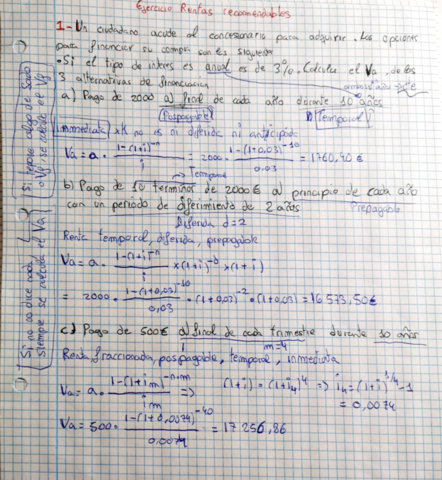 Ejercicio Rentas recomendables
1- Un ciudadano acude al concesionario para adquirir. Las opciones
para financiar su compra son las siguientes
• Si el tipo de interes es anual es de 3%. Calcula el Va, de las
3 alternativas de financiación
a) Pago de 2000 al final de cada año durante 10 años
Pospagable Temporal
Inmediata xK no es ni diferida ni anticipada
Va = a · 1-(1+i)^-n / i = 2000 · 1-(1+0,03)^-10 / 0,03 = 1760,40 €
Temporal
b) Pago de 10 terminos de 2000€ al principio de cada año
con un periodo de diferimiento de 2 años Prepagable
Diferida d=2
Renta temporal, diferida, prepagable
Va = a · 1-(1+i)^-n / i x (1+i)^-d x (1+i)
= 2000 · 1-(1+0,03)^-10 / 0,03 · (1+0,02)^-2 · (1+0,03) = 16573,50€
c) Pago de 500€ al final de cada trimestre durante 10 años
m=4
Renta fraccionada, pospagable, temporal, inmediata
Va = a · 1-(1+im)^-n*m / im => (1+i) = (1+i4)^4 => i4 = (1+i)^1/4 - 1
= 0,0074
Va = 500 · 1-(1+0,0074)^-40 / 0,0074 = 17256,86
Si no no dice nada
siempre se calcula el Va